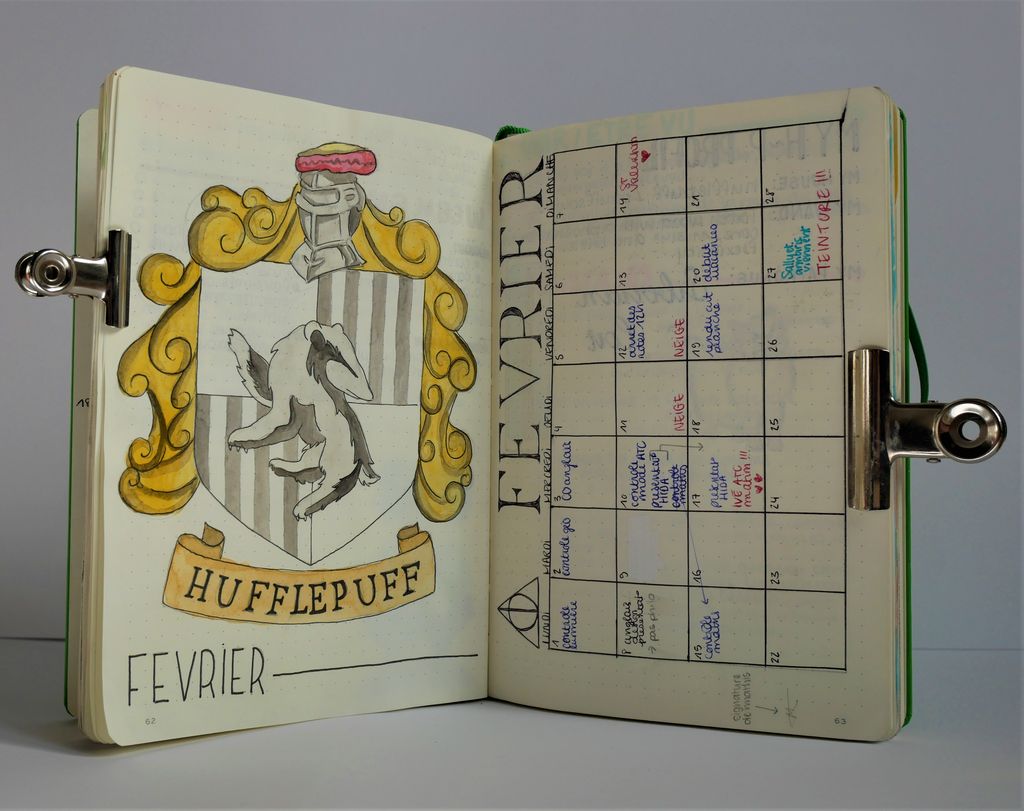 HUFFLEPUFF
FEVRIER
62
FEVRIER
LUNDI
MARDI
MERCREDI
JEUDI
VENDREDI
SAMEDI
DIMANCHE
1
contrôle
lumière
2
contrôle géo
3
co anglais
4
5
6
7
8
anglais
→ pas philo
9
10
contrôle
mode ATC
HIDA
contrôle
maths
11
NEIGE
12
arret des
notes 12h
NEIGE
13
14
ST
Valentin
15
contrôle
maths
16
17
HIDA
IVE ATC
matin !!!
18
19
rendu art
planche
20
début
vacances
21
22
23
24
25
26
27
viennent
TEINTURE !!!
28
signature
de mathis
63